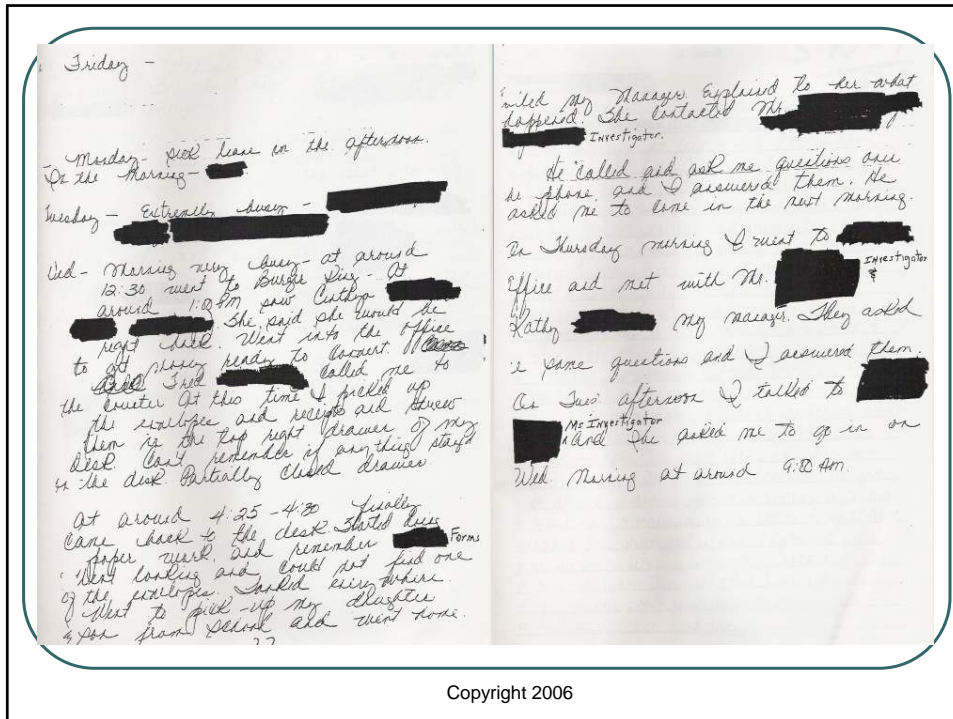 Friday -
- Monday - sick leave in the afternoon.
In the Morning -
Tuesday - Extremlly busy -
Wed - Morning very busy - at around
12:30 went to Burger King - At
around 1:00 PM saw Cinthya
She said she would be
right back. Went into the office
to get money ready to convert.
Fred called me to
the counter At this time I picked up
the envelopes and receipts and threw
them in the top right drawer of my
Disk. Can't remember if anything stayd
on the desk. Partially closed drawer.
At around 4:25 - 4:30 finally
came back to the desk. Started doing
paper work. and remember Forms
Went looking and could not find one
of the envelopes. Looked everywhere.
Went to pick-up my daughter
& son from school and went home.
my Manager. Explained to her what
happened. She contacted Mr.
Investigator.
He called and ask me questions over
he phone, and I answered them. He
asked me to come in the next morning.
On Thursday morning I went to
Office and met with Mr. Investigator
&
Kathy my manager. They asked
same questions and I answered them.
On Tues afternoon I talked to
Ms Investigator
And she asked me to go in on
Wed. Morning at around 9:00 Am.
Copyright 2006